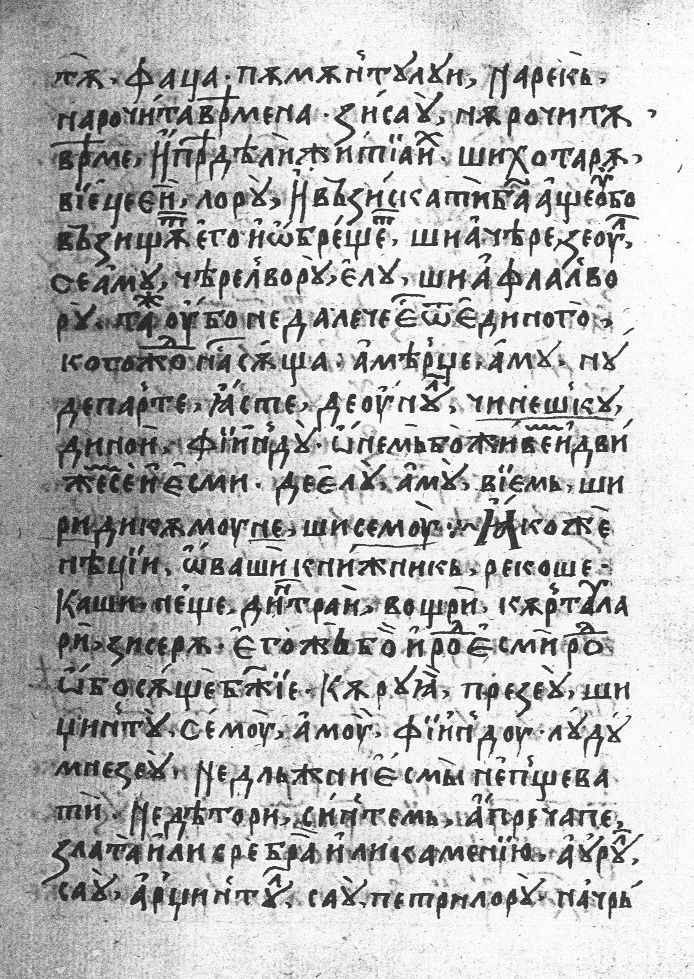 тѫ. фаца. пѫмѫнтꙋлꙋи, нарекь,
нарочитаврмена. зисаꙋ, нѫрочитѫ,
врме, нпрдѣлижитїаи. шихотарѫ,
вїецеей, лорꙋ, нвъзискатибꙋа аще обо
въз̾ищѫ его иѡбрѣще, шиачѣре, зеоу,
сеамꙋ, чѣрелворꙋ, елꙋ, шиафлалво
рꙋ. такоубо недалече ѿ единого,
когождо насѫща. амѣрце, амꙋ, нꙋ
департе, ꙗсте, деоунꙋл, чинешкꙋ,
диной, фїиндꙋ. ѡнемьбоживеидви
жесеиесми. деелꙋ, амꙋ, вїемь, ши
ридикѫмоуне, шисемоу. Ꙗкоже
нѣцїи, ѿвашикнижникь, рекоше.
каши неще, динтраи, вощри, кѫрталя
ри, зисерѫ. егожьбо иро есми ро
ѡбосѫщебжїе. Кѫрꙋꙗ, презеꙋ, ши
цинтꙋ. семоу, амоу. фїиндоу лꙋдꙋ
мнезеꙋ, недльжни есмы непщева
ти. недѣтори, синтемь, апречапе,
златаилисребраиликаменїю, аꙋрꙋл,
саꙋ, арцинтꙋл. саꙋ, петрилорꙋ. начрь